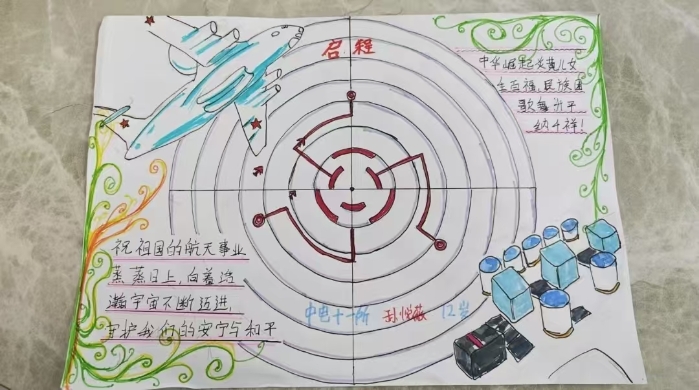 启程
中华崛起炎黄儿女
生百福,民族团
歌舞升平
纳千祥!
祝祖国的航天事业
蒸蒸日上,向着浩
瀚宇宙不断迈进,
守护我们的安宁与和平
中电十一所 孙恺薇 12岁